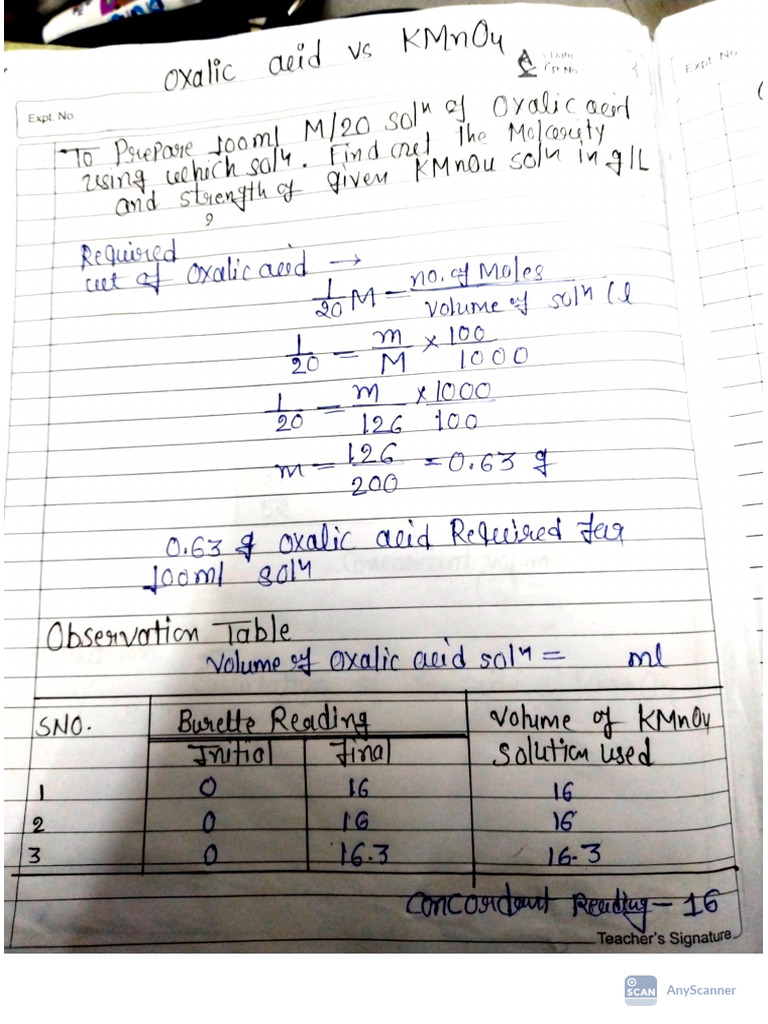 Oxalic acid vs KMnO4
Date
P. No.
Expt. No.
Expt. No
To Prepare 100ml M/20 solⁿ of Oxalic acid
using which solⁿ. Find out the Molarity
and strength of given KMnO4 solⁿ in g/L
?
Required
wt of Oxalic acid →
1/20 M = no. of Moles / Volume of solⁿ (l
1/20 = m/M × 100/1000
1/20 = m/126 × 1000/100
m = 126/200 = 0.63 g
0.63 g oxalic acid Required for
100ml solⁿ
Observation Table
Volume of oxalic acid solⁿ = ml
SNO. Burette Reading Volume of KMnO4
Initial Final Solution used
1 0 16 16
2 0 16 16
3 0 16.3 16.3
Concordant Reading - 16
Teacher's Signature
SCAN AnyScanner